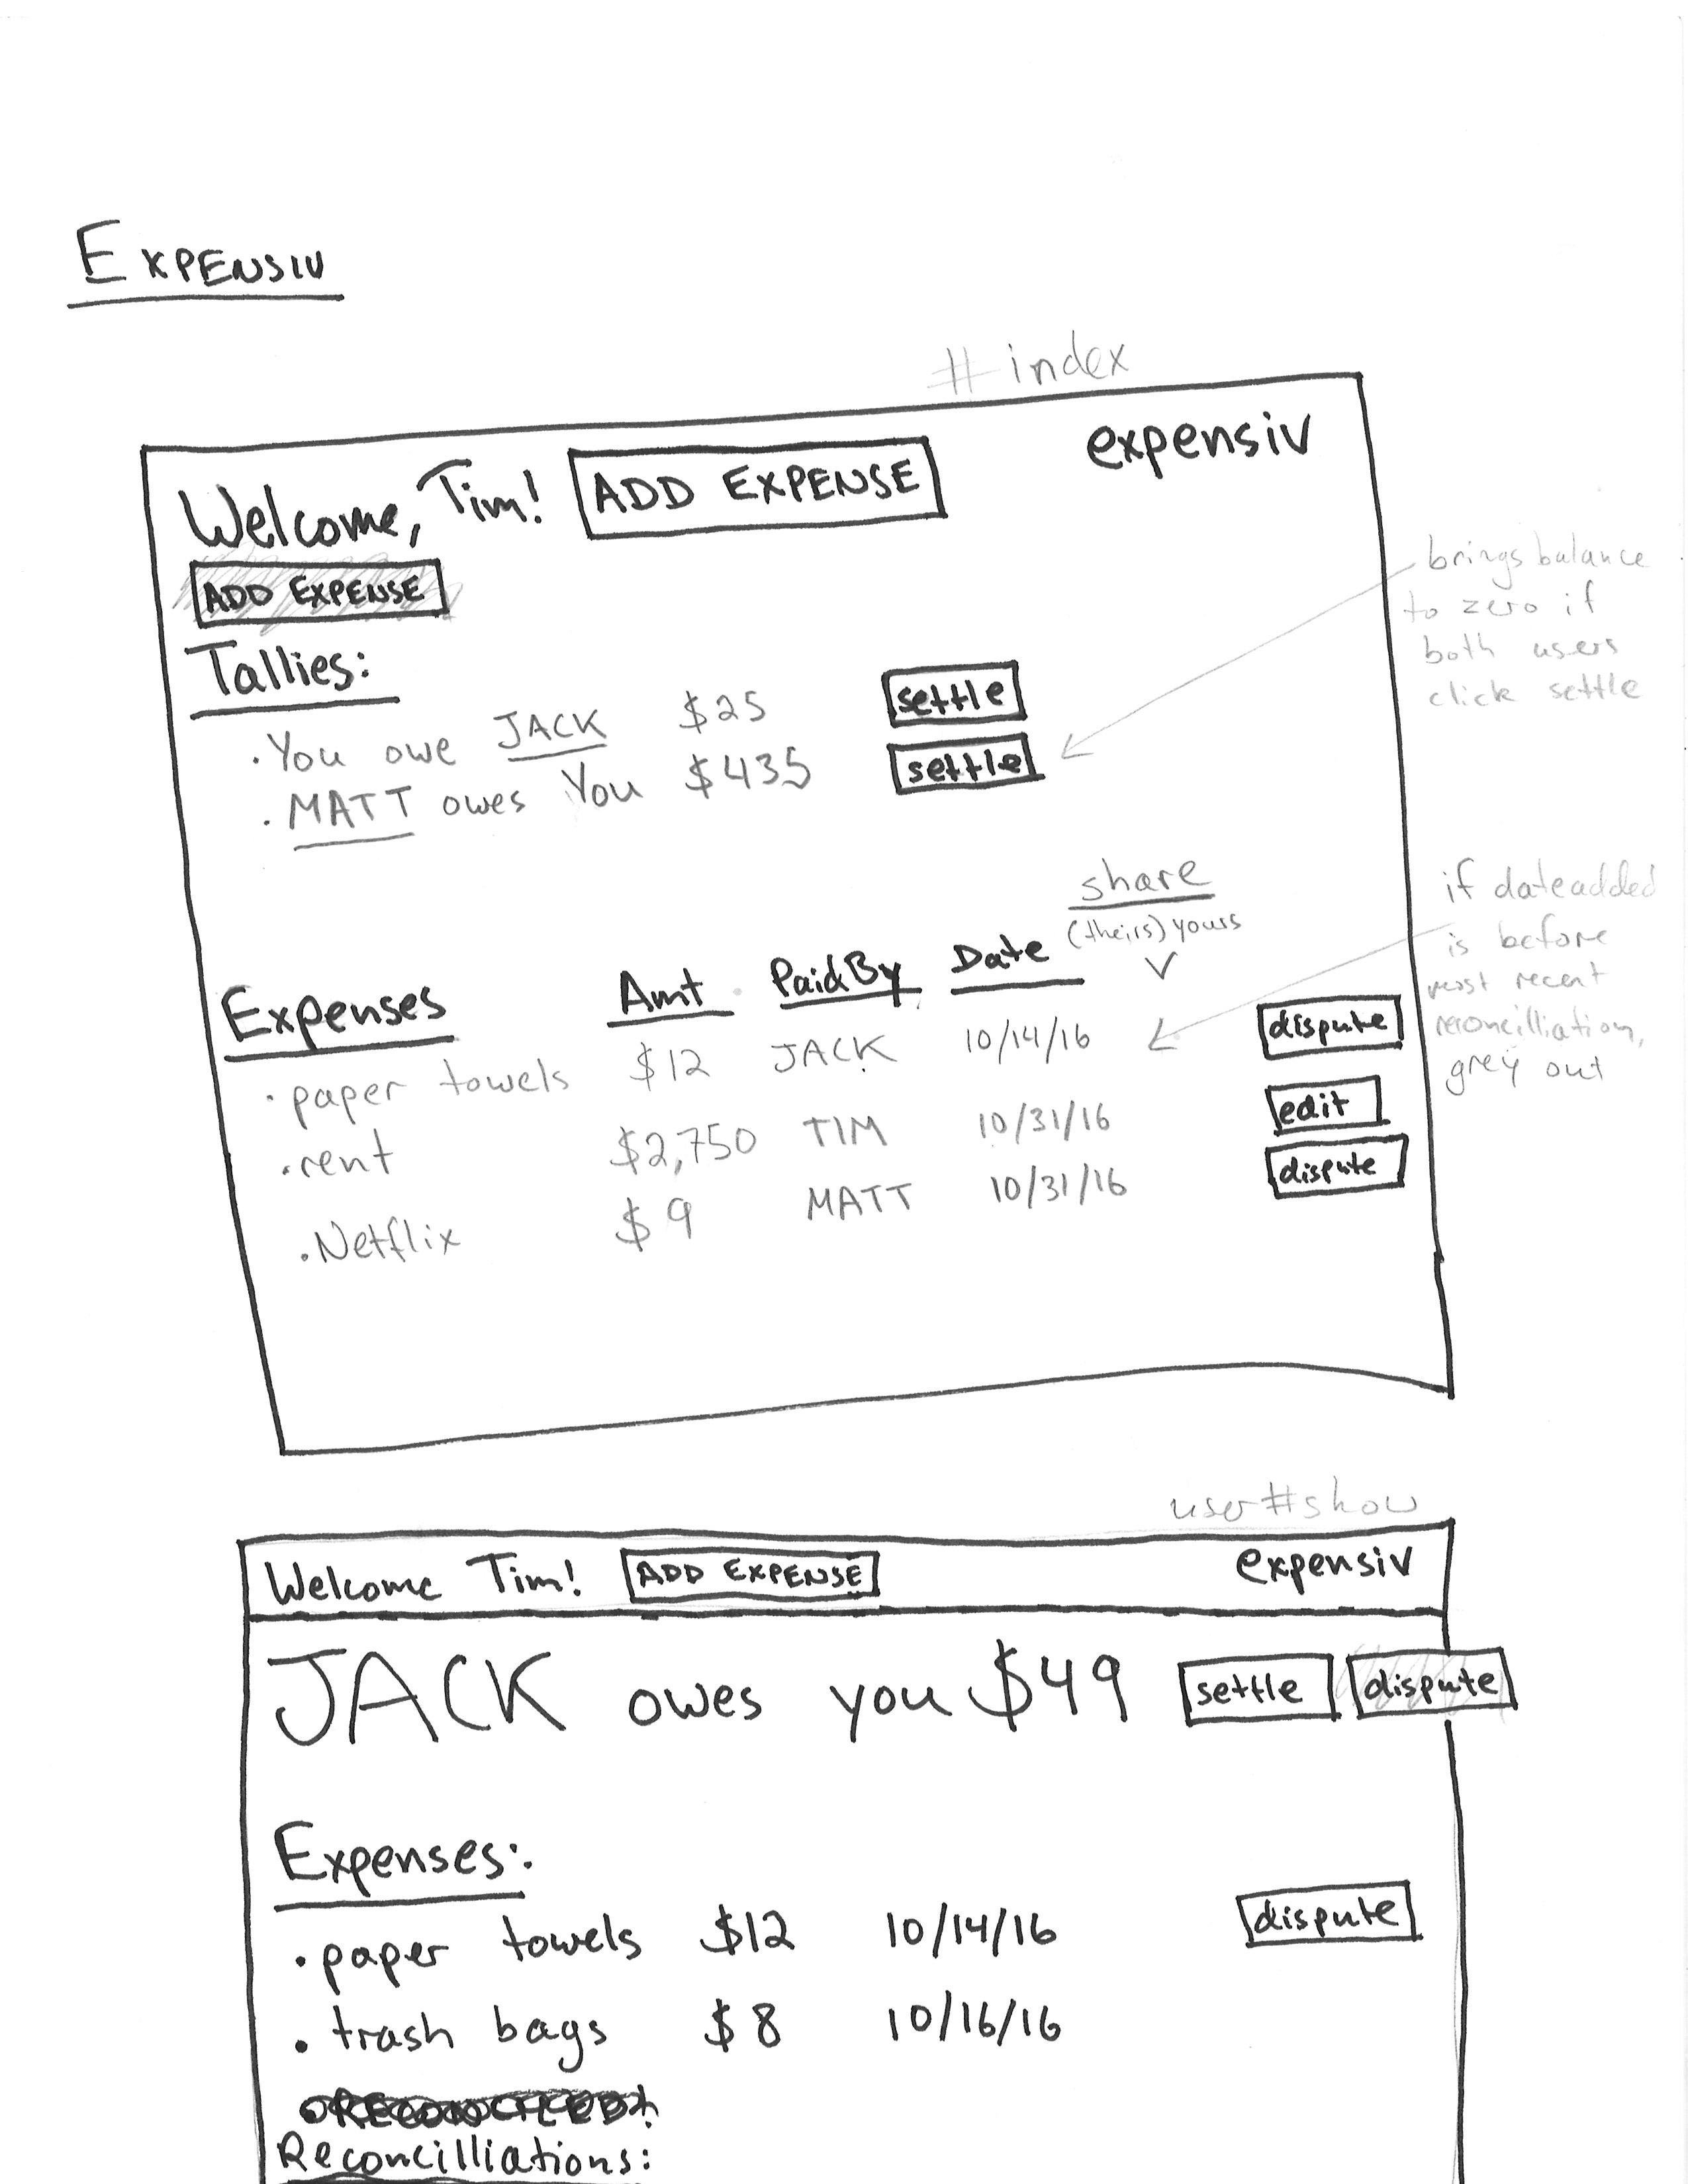 EXPENSIV
# index
Welcome, Tim! ADD EXPENSE expensiv
ADD EXPENSE
Tallies:
· You owe JACK $25 settle
· MATT owes You $435 settle
brings balance
to zero if
both users
click settle
share
(theirs) yours
Expenses Amt PaidBy Date
· paper towels $12 JACK 10/14/16 dispute
· rent $2,750 TIM 10/31/16 edit
· Netflix $9 MATT 10/31/16 dispute
if dateadded
is before
most recent
reconcilliation,
grey out
user#show
Welcome Tim! ADD EXPENSE expensiv
JACK owes you $49 settle dispute
Expenses:
· paper towels $12 10/14/16 dispute
· trash bags $8 10/16/16
Reconcilliations: